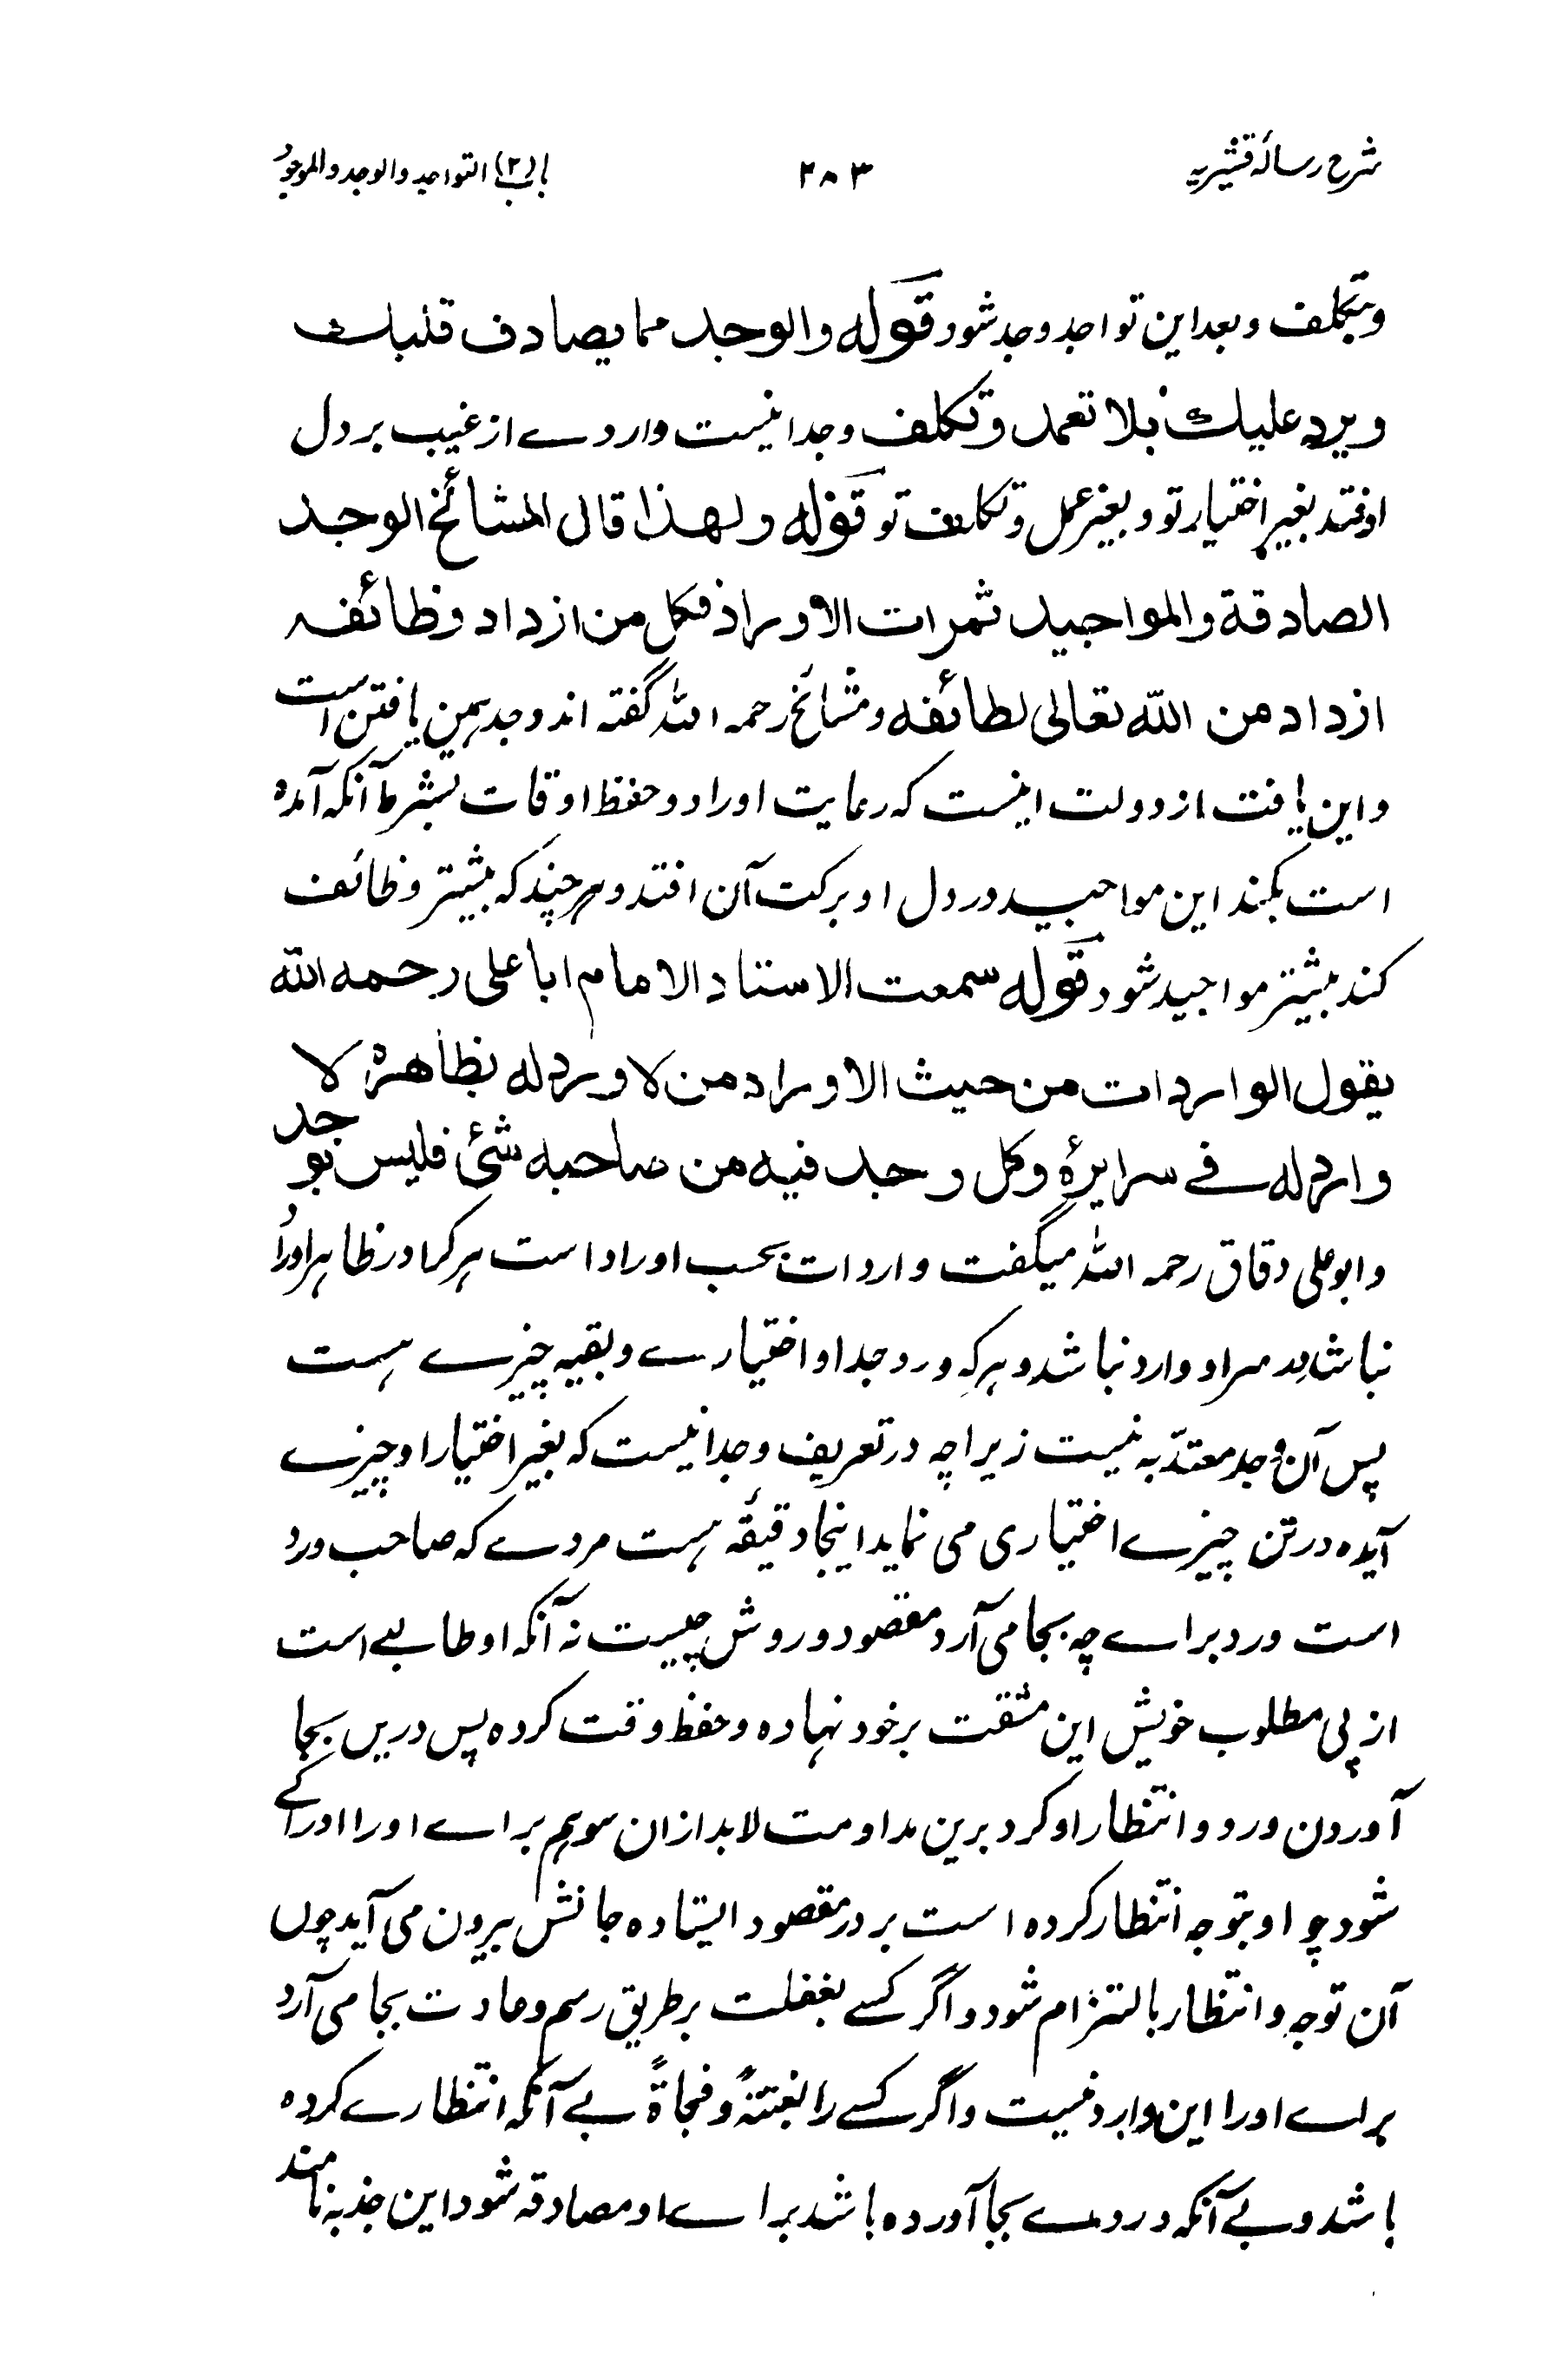 شرح رسالہ قشیریہ ۲۸۳ باب (۲) التواجد والوجد والموجود
وتکلف وبعد این تواجد وجد شود قوله والوجد مما یصادف قلبك
ویرد علیك بلا تعمد وتکلف وجد اینست واردے از غیب بر دل
اوفتد بغیر اختیار تو و بغیر عمل وتکلف تو قوله ولهذا قال المشائخ الوجد
الصادقة والمواجید ثمرات الاوراد فکل من ازداد وظائفه
ازداد من الله تعالی لطائفه ومشائخ رحمہ اللہ گفته اند وجد ہمین یافتن است
واین یافت از دولت اینست که رعایت اوراد وحفظ اوقات بشرط آنکه آمده
است بکند این مواجید در دل او برکت آن افتد وهرچند که بیشتر وظائف
کند بیشتر مواجید شود قوله سمعت الاستاد الامام ابا علی رحمه الله
یقول الواردات من حیث الاوراد من لا ورد له بظاهره لا
وارد له فے سرایره وکل وجد فیه من صاحبه شئ فلیس بوجد
وابو علی دقاق رحمہ اللہ میگفت واردات بحسب اوراد است ہر کرا در ظاہر اوراُ
نباشد مر او وارد نباشد وہرکه در وجد او اختیارے وبقیه چیزے ہست
پس آن وجد معتدّ به نیست زیراچه در تعریف وجد اینست که بغیر اختیار او چیزے
آیده در تن چیزے اختیاری می نماید اینجا دقیقه ہست مردے که صاحب ورد
است ورد براے چه بجا می آرد مقصود و روش چیست نه آنکه او طالبے است
از پی مطلوب خویش این مشقت بر خود نهاده وحفظ وقت کرده پس دریں بجا
آوردن ورد و انتظار او کرد برین مداومت لابد ازان سو ہم براے اورا ادراکے
شود چو او بتوجه انتظار کرده است بر در مقصود ایستاده جانش بیرون می آید چوں
آن توجه و انتظار بالتزام شود و اگر کسے بغفلت بر طریق رسم وعادت بجا می آرد
براے اورا این وارد نیست واگر کسے را بغتةً وفجاةً بے آنکه انتظارے کرده
باشد وبے آنکه وردے بجا آورده باشد براے او مصادقه شود این جذبه نامند